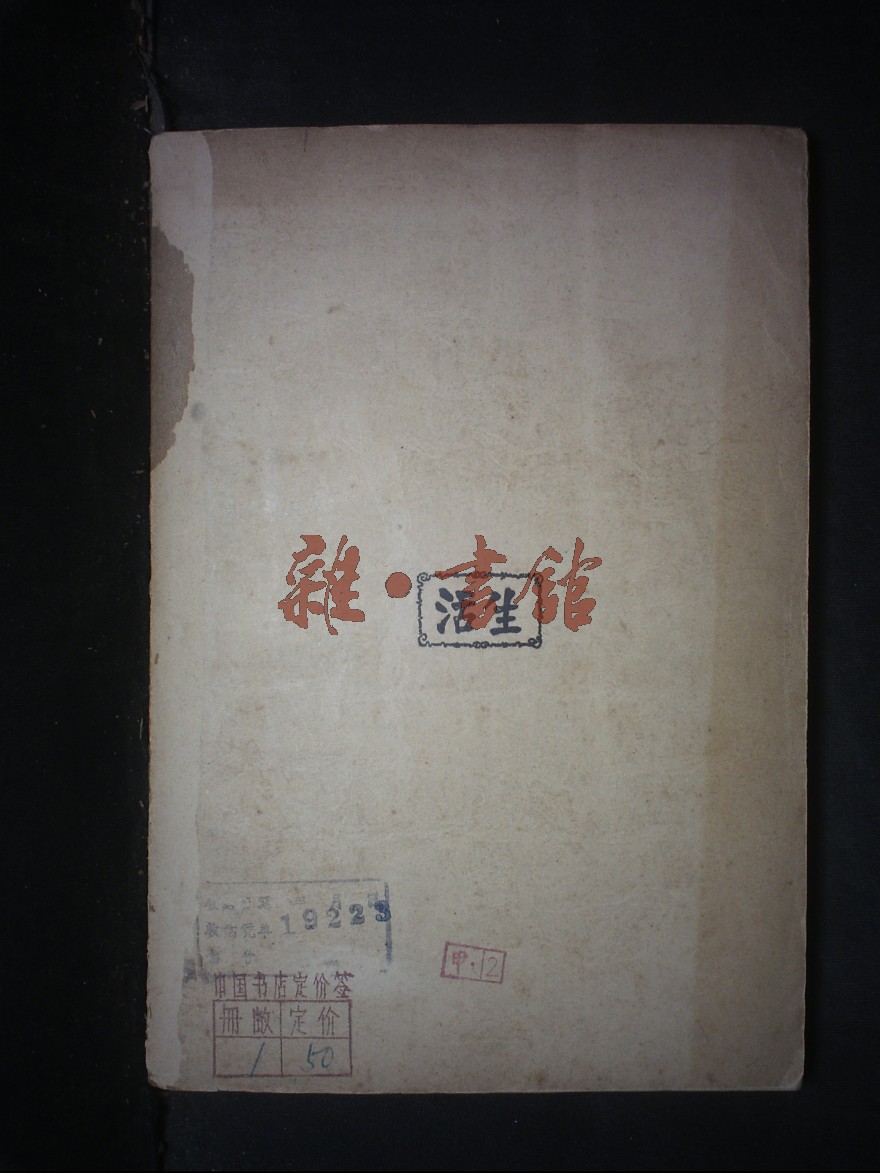 雜·書館
活生
19223
中国书店定价签
册数 定价
1 50
甲·12